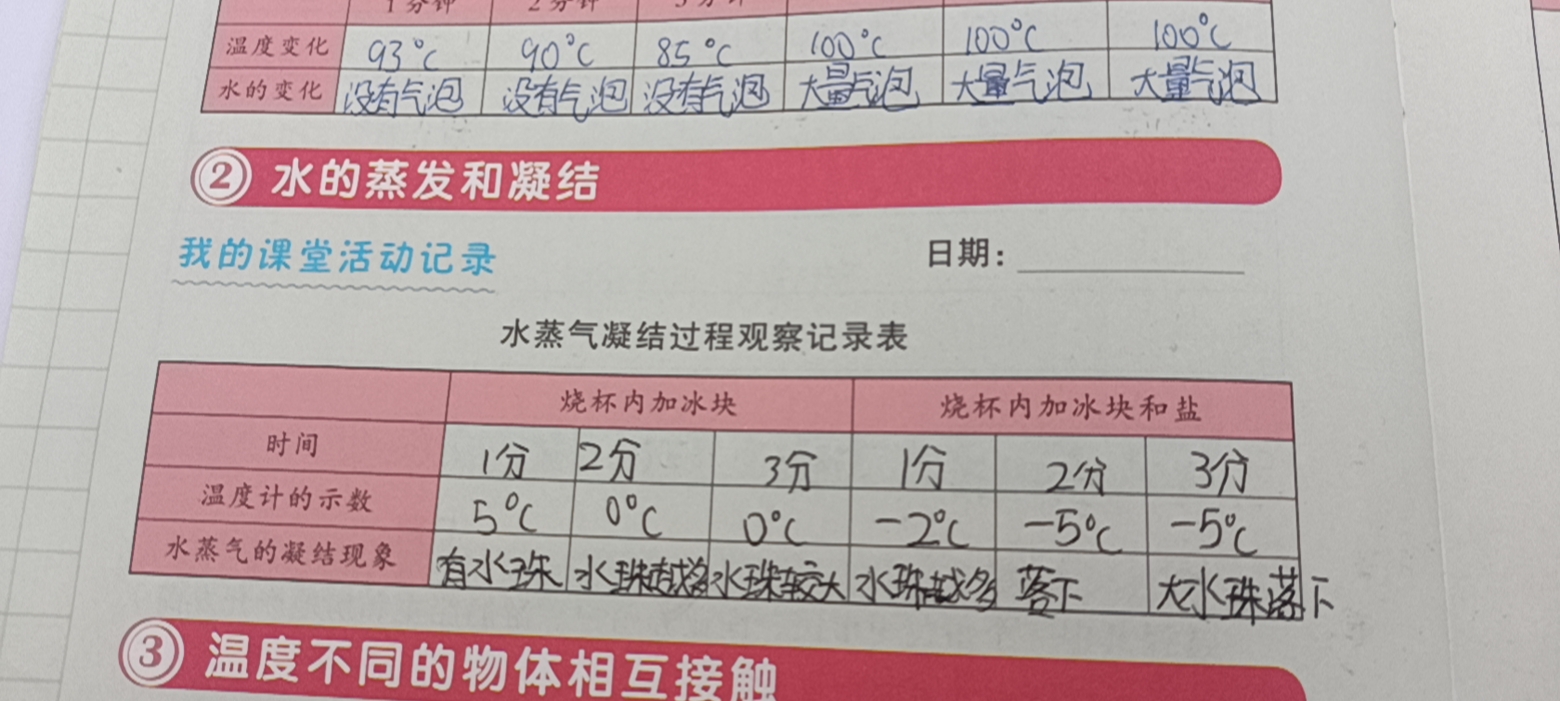 1分钟 2分钟
温度变化 93℃ 90℃ 85℃ 100℃ 100℃ 100℃
水的变化 没有气泡 没有气泡 没有气泡 大量气泡 大量气泡 大量气泡
② 水的蒸发和凝结
我的课堂活动记录 日期：
水蒸气凝结过程观察记录表
烧杯内加冰块 烧杯内加冰块和盐
时间 1分 2分 3分 1分 2分 3分
温度计的示数 5℃ 0℃ 0℃ -2℃ -5℃ -5℃
水蒸气的凝结现象 有水珠 水珠越多 水珠较大 水珠越多 落下 大水珠落下
③ 温度不同的物体相互接触